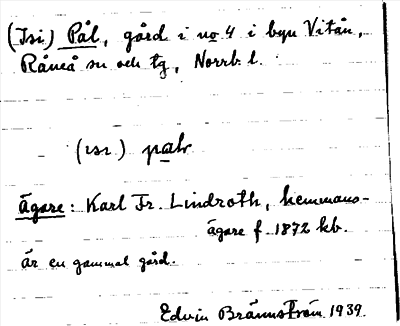 (Isi) Pål, gård i no 4 i byn Vitån,
Råneå sn och tg, Norrb. l.
(ısı)
Ägare: Karl Fr. Lindroth, hemmans-
ägare f. 1872 kb.
är en gammal gård.
Edvin Brännström 1939.